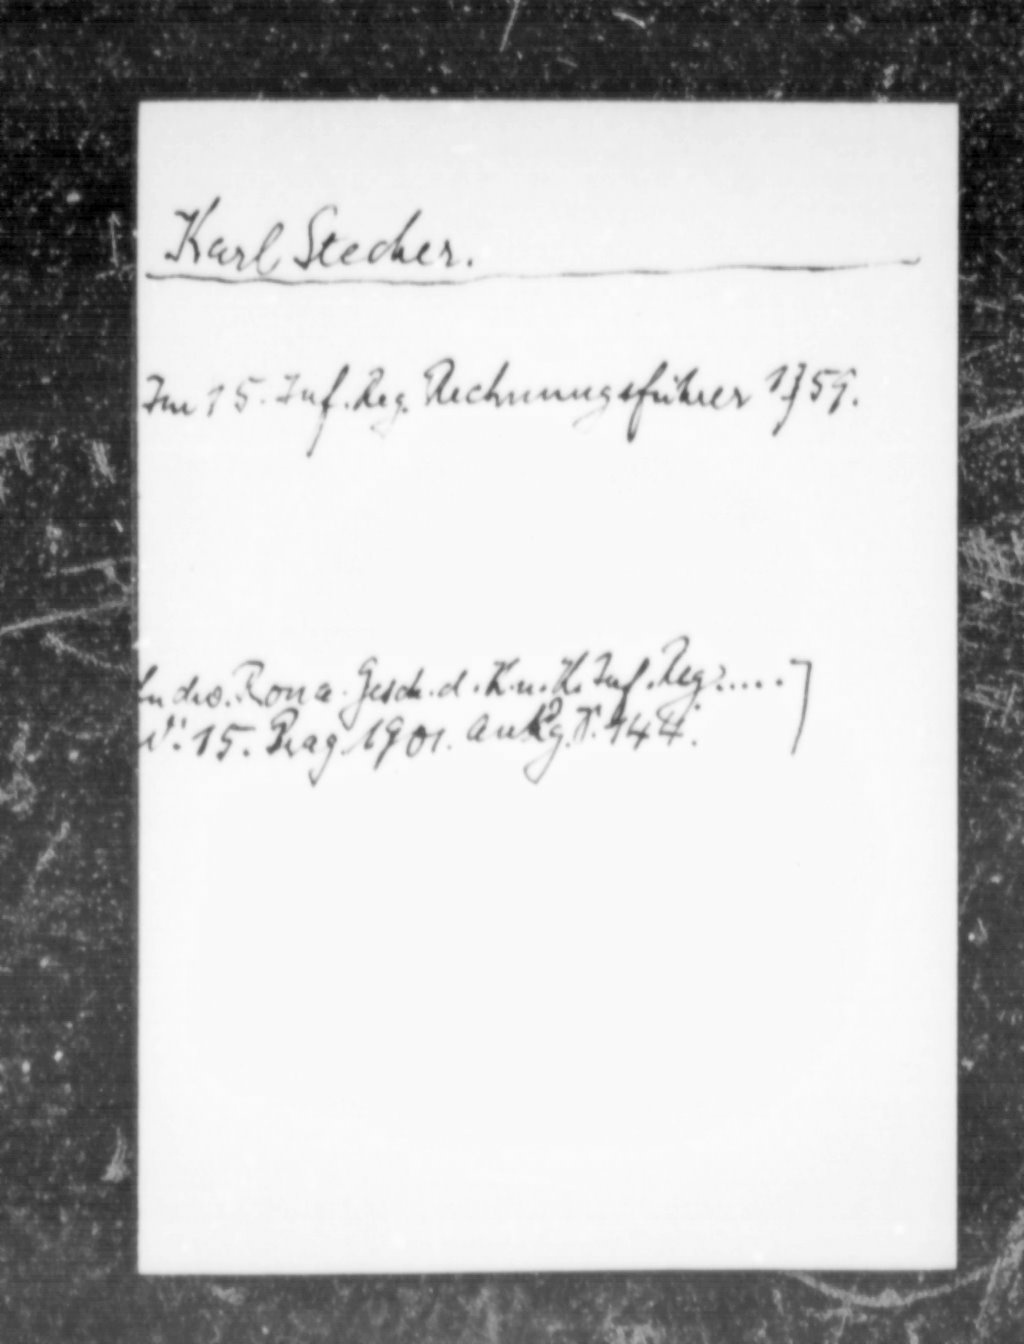 Karl Stecher.
Im 15. Inf. Reg. Rechnungsführer 1759.
Rona. Gesch. d. K. u. K. Inf. Reg. .....
N: 15. Prag 1901. 144.